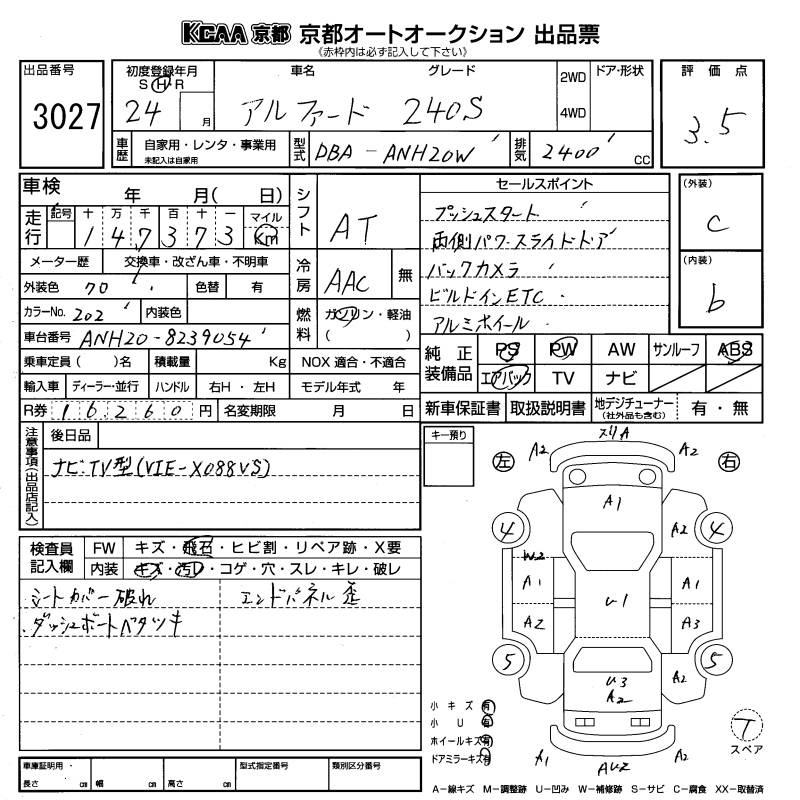 KCAA 京都 京都オートオークション 出品票
《赤枠内は必ず記入して下さい》
出品番号 初度登録年月 車名 グレード 2WD ドア・形状 評価点
S H R
3027 24 月 アルファード 240S 4WD 3.5
車歴 自家用・レンタ・事業用 型式 DBA-ANH20W 排気 2400 CC
未記入は自家用
車検 年 月( 日) シフト AT セールスポイント (外装)
走行 記号 十 万 千 百 十 一 マイル プッシュスタート C
1 4 7 3 7 3 Km 両側パワースライドドア
メーター歴 交換車・改ざん車・不明車 冷房 AAC 無 バックカメラ (内装)
外装色 70 色替 有 ビルドインETC b
カラーNo. 202 内装色 燃料 ガソリン・軽油 アルミホイール
車台番号 ANH20-8239054 ( )
乗車定員( )名 積載量 Kg NOX 適合・不適合 純正装備品 PS PW AW サンルーフ ABS
輸入車 ディーラー・並行 ハンドル 右H・左H モデル年式 年 エアバック TV ナビ
R券 16260円 名変期限 月 日 新車保証書 取扱説明書 地デジチューナー 有・無
(社外品も含む)
注意事項(出品店記入) 後日品 キー預り
ナビTV型(VIE-X088VS)
検査員記入欄 FW キズ・飛石・ヒビ割・リペア跡・X要
内装 キズ・汚レ・コゲ・穴・スレ・キレ・破レ
シートカバー破れ エンドパネル歪
ダッシュボードベタツキ
スリA
左 A2 A2 右
A1
4 A2 4
W2
A1 U1 A1
A2 A3
5 U3 A2 5
A2
小キズ 有
小U 有
ホイールキズ 有
ドアミラーキズ 有
A1 AU2 A2
T
スペア
車庫証明用・ 型式指定番号 類別区分番号
長さ cm 幅 cm 高さ cm
A-線キズ M-調整跡 U-凹み W-補修跡 S-サビ C-腐食 XX-取替済